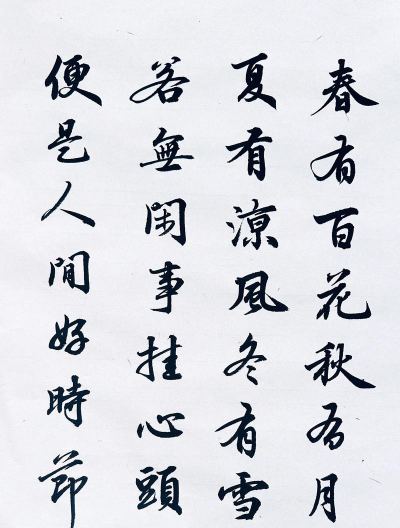 春有百花秋有月
夏有涼風冬有雪
若無閒事挂心頭
便是人間好時節